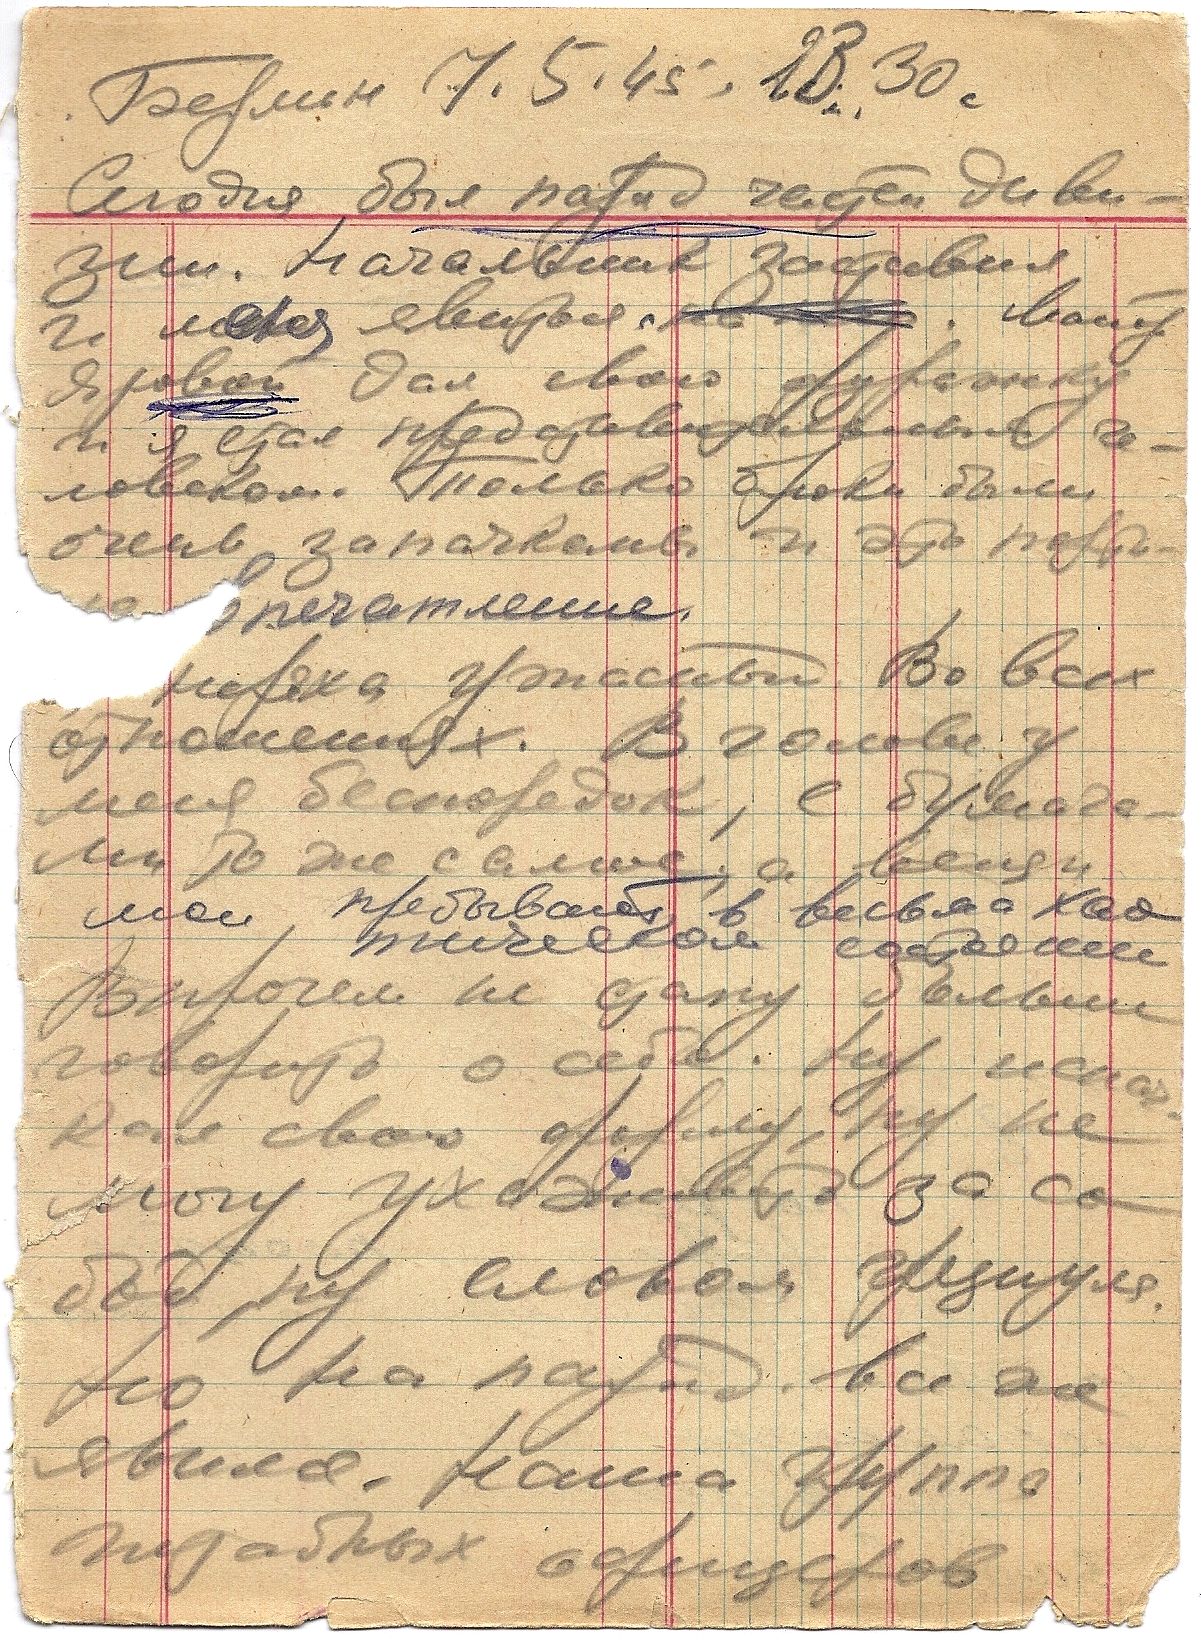 Берлин 7.5.45. 23.30.
Сегодня был парад частей диви-
зии. Начальник заставил
и меня явиться. Майор
Яровой дал свою фуражку
и я стал представительным че-
ловеком. Только брюки были
очень запачканы и это порти-
ло впечатление.
неряха ужасный. Во всех
отношениях. В голове у
меня беспорядок, с бумага-
ми то же самое, а вещи
мои пребывают в весьма хао
тическом состоянии
Впрочем не стану больше
говорить о себе. Ну испач-
кал свою форму, ну не
могу ухаживать за со
бой, ну словом грязнуля.
Но на парад все же
явился. Наша группа
штабных офицеров